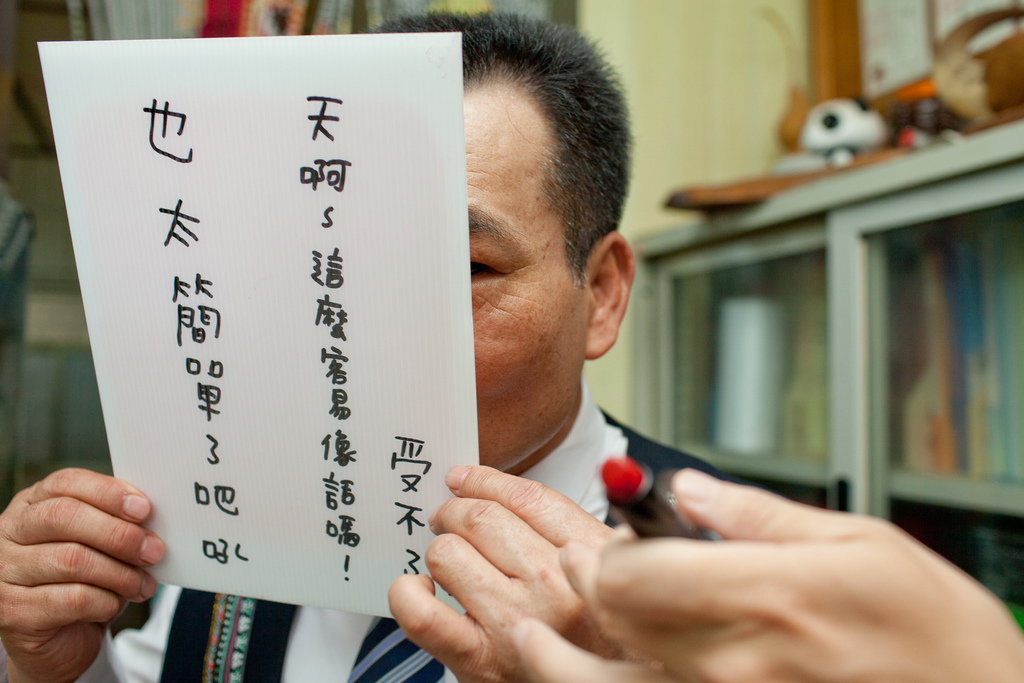 受不了
天啊~這麼容易像話嗎!
也太簡單了吧吼